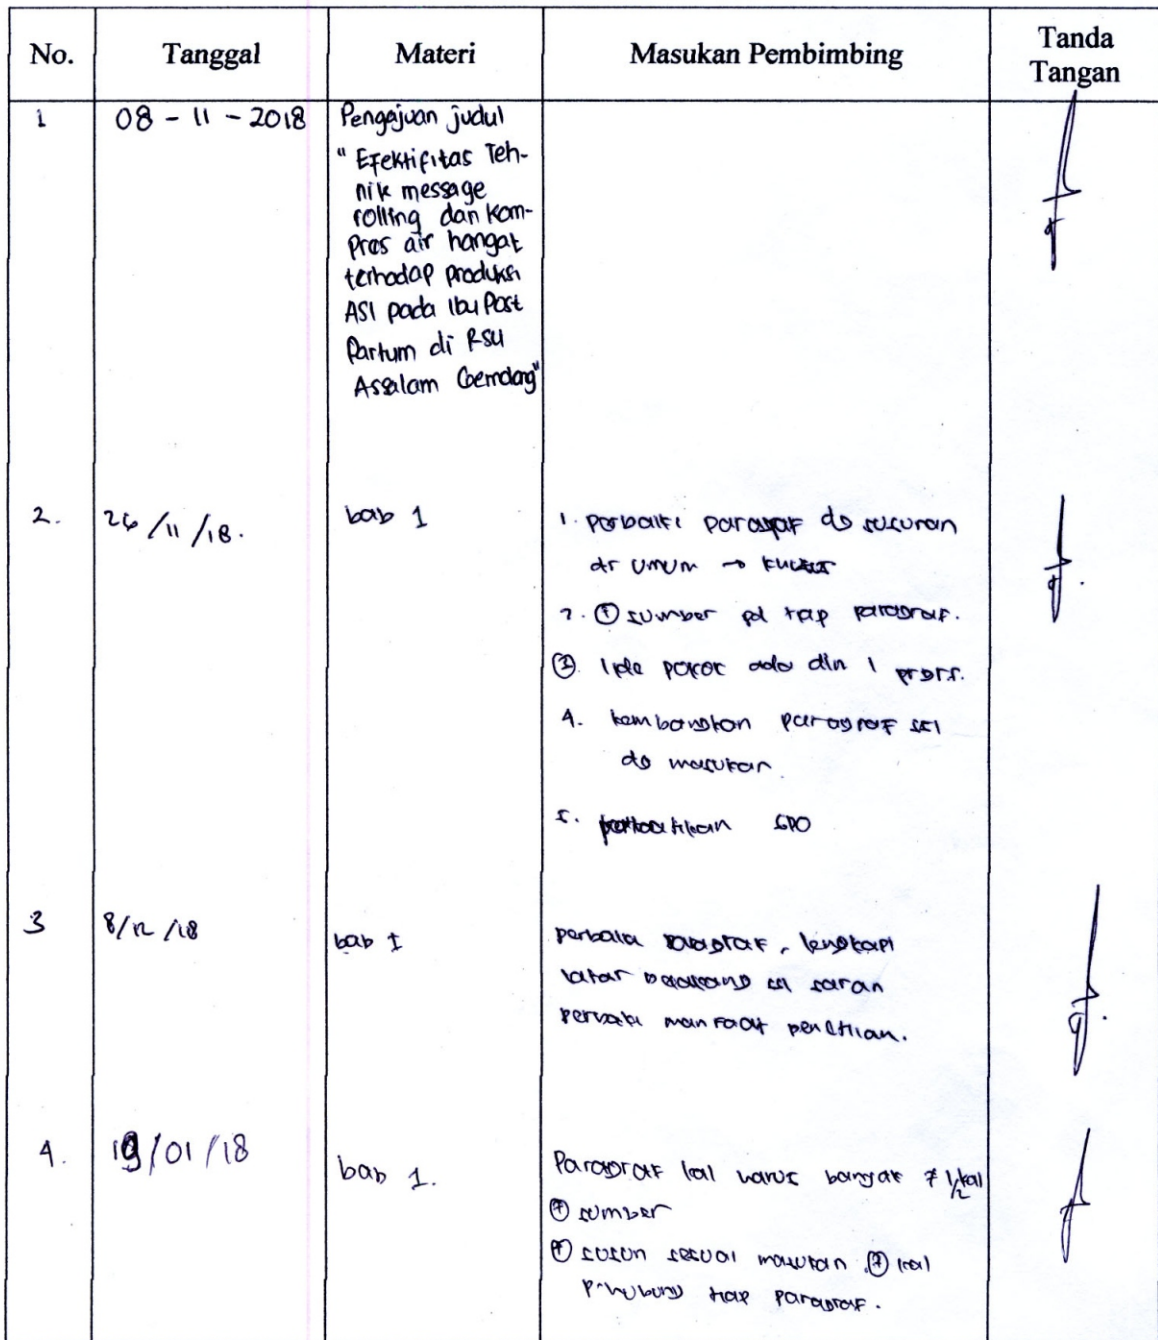 No. Tanggal Materi Masukan Pembimbing Tanda
Tangan
1 08 - 11 - 2018 Pengajuan judul
" Efektifitas Teh-
nik message
rolling dan kom-
pres air hangat
terhadap produksi
ASI pada Ibu Post
Partum di RSU
Assalam Gemolong"
2. 26/11/18. bab 1 1. perbaiki paragraf dg susunan
dr umum → khusus
2. ⊕ sumber pd tiap paragraf.
③. Ide pokok ada dlm 1
4. kembangkan paragraf
dg masukan.
5. perbaikan SPO
3 8/12/18 bab I perbaiki paragraf, lengkapi
latar belakang saran
perbaiki manfaat penelitian.
4. 19/01/18 bab 1. Paragraf kal harus banyak ≠ 1/2 kal
⊕ sumber
⊕ susun sesuai masukan ⊕ kal
p'hubung tiap paragraf.